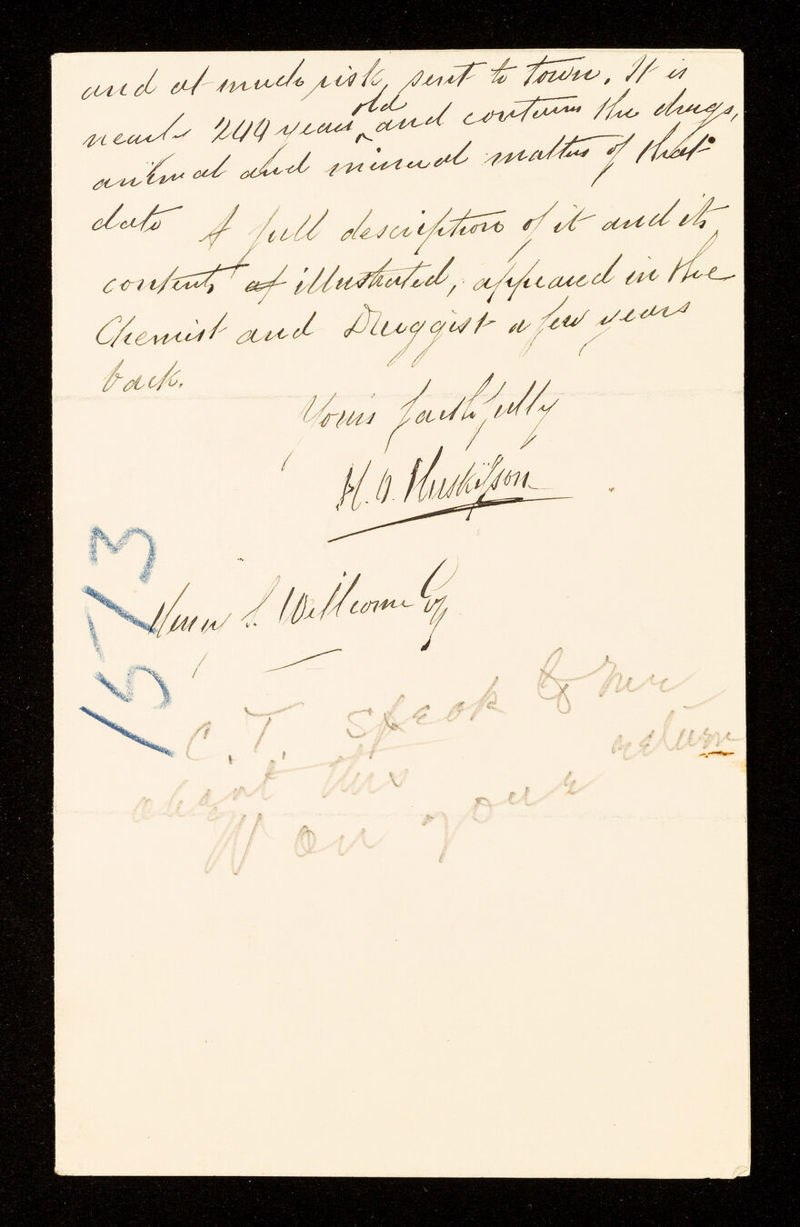 and at much risk, sent to town. It is
nearly 200 years old and contains the drugs,
animal and mineral matters of that
date A full description of it and its
contents of illustrated, appeared in the
Chemist and Druggist a few years
back.
Yours faithfully
H. O. Huskisson
Henry S. Wellcome Esq
1573
C.T. speak to me
about this
on your return